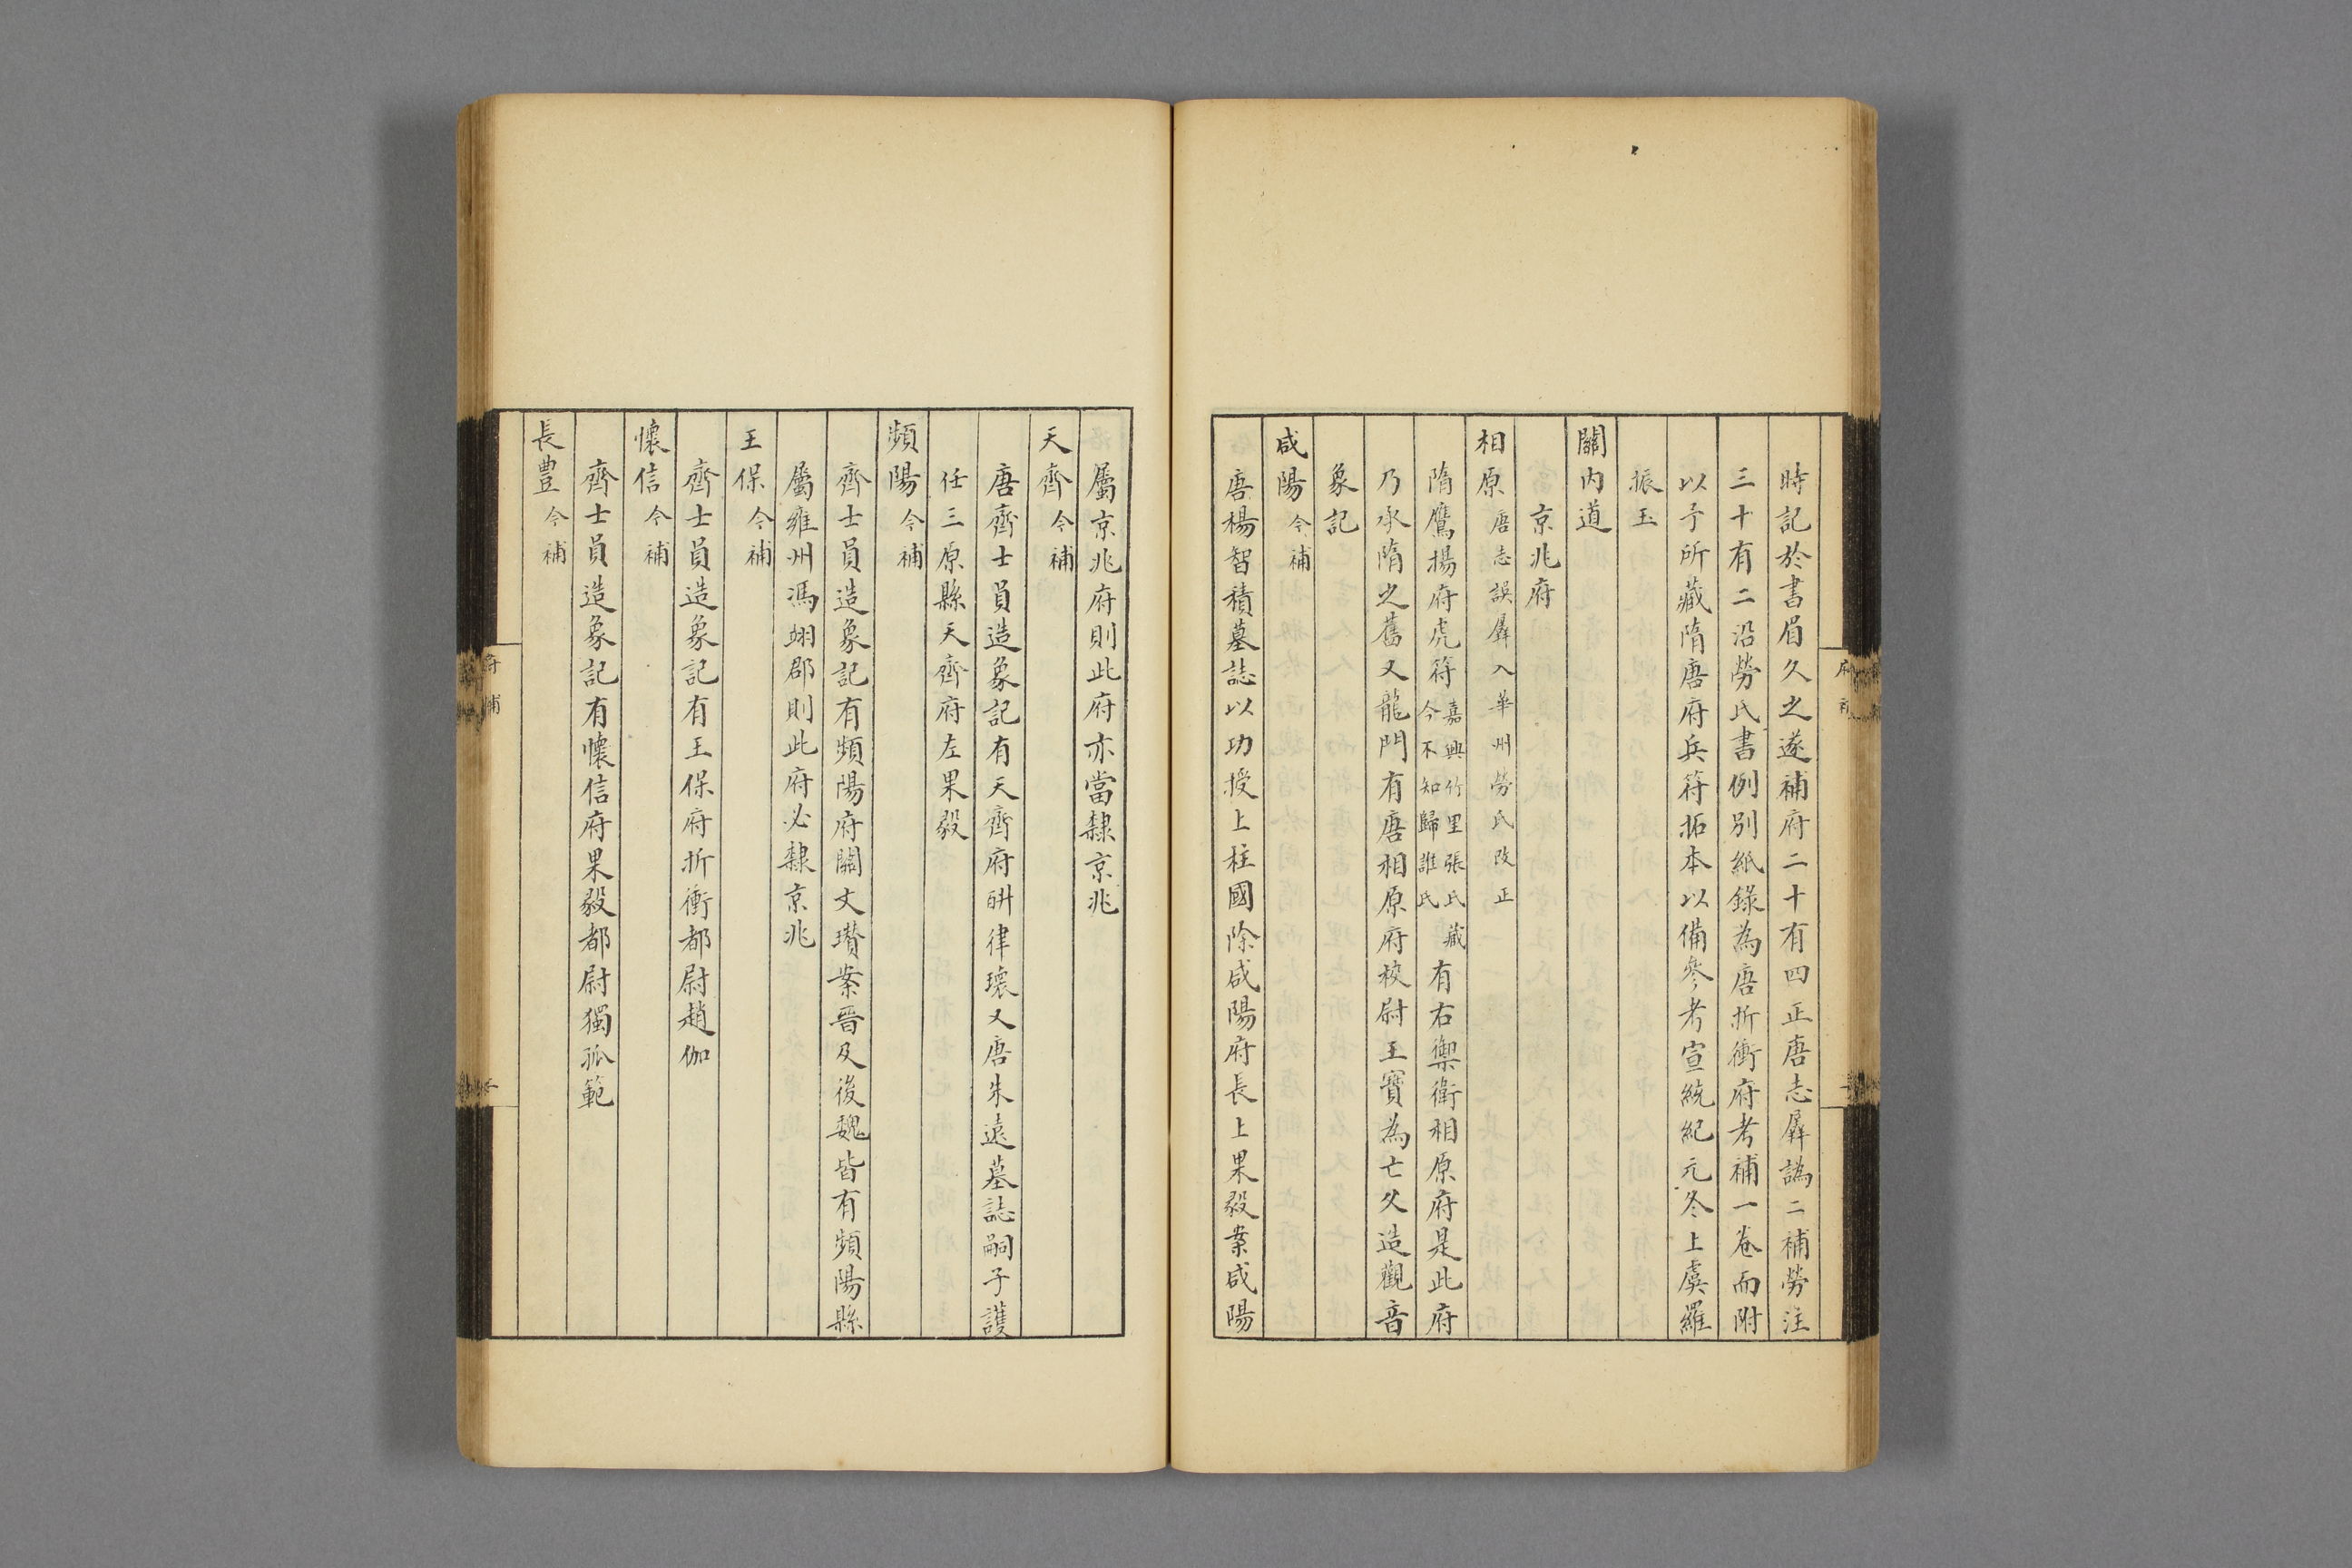 時記於書眉久之遂補府二十有四正唐志羼譌二補勞注
三十有二沿勞氏書例別紙錄為唐折衝府考補一卷而附
以予所藏隋唐府兵符拓本以備參考宣統紀元冬上虞羅
振玉
關內道
京兆府
相原唐志誤羼入華州勞氏改正
隋鷹揚府虎符嘉興竹里張氏藏今不知歸誰氏有右禦衛相原府是此府
乃承隋之舊又龍門有唐相原府校尉王寶為亡父造觀音
象記
咸陽今補
唐楊智積墓誌以功授上柱國除咸陽府長上果毅案咸陽
屬京兆府則此府亦當隸京兆
天齊今補
唐齊士員造象記有天齊府研律瓌又唐朱遠墓誌嗣子護
任三原縣天齊府左果毅
頻陽今補
齊士員造象記有頻陽府關文瓚案晉及後魏皆有頻陽縣
屬雍州馮翊郡則此府必隸京兆
王保今補
齊士員造象記有王保府折衝都尉趙伽
懷信今補
齊士員造象記有懷信府果毅都尉獨孤範
長豐今補
府補